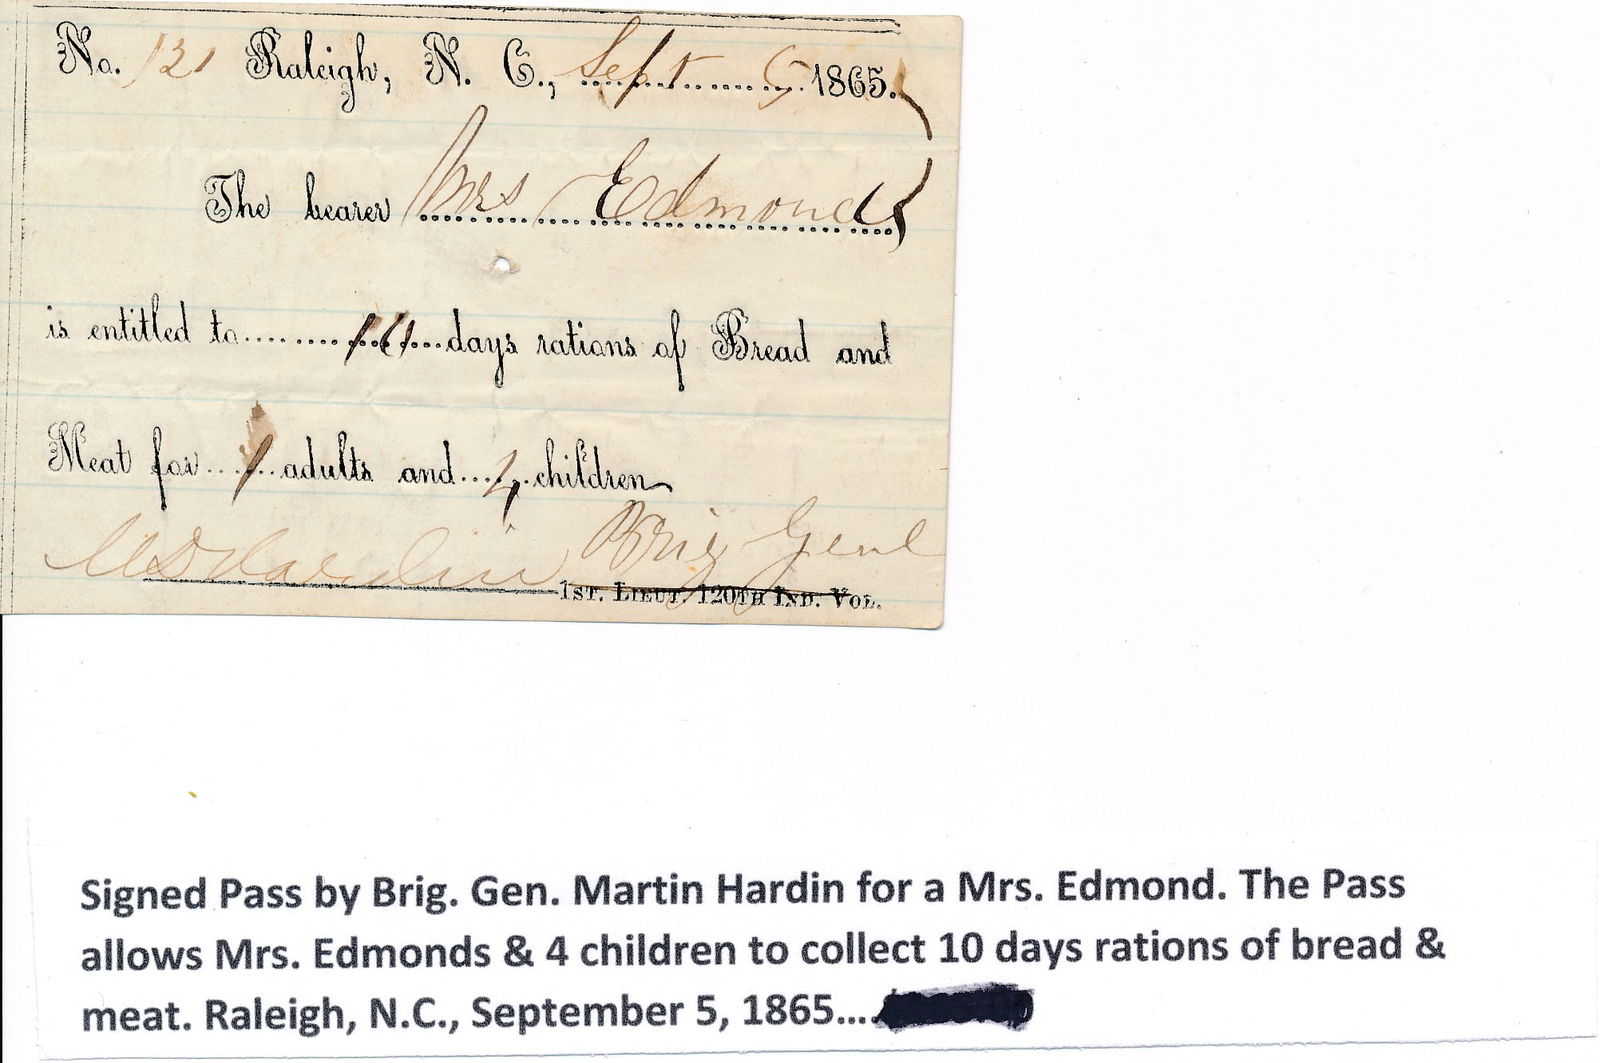 No. 131 Raleigh, N. C., Sept 5 1865.
The bearer Mrs Edmonds
is entitled to 10 days rations of Bread and
Meat for 1 adults and 4 children
MD Hardin Brig Genl
1ST. LIEUT. 120TH IND. VOL.
Signed Pass by Brig. Gen. Martin Hardin for a Mrs. Edmond. The Pass
allows Mrs. Edmonds & 4 children to collect 10 days rations of bread &
meat. Raleigh, N.C., September 5, 1865....